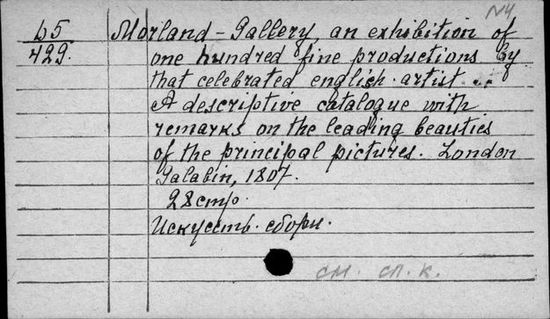 N4
45
429
Morland-Gallery, an exhibition of
one hundred fine productions by
that celebrated english artist...
A descriptive catalogue with
remarks on the leading beauties
of the principal pictures. London
Galabin, 1807.
28 стр.
Искусств. сборн.
см. сл. к.